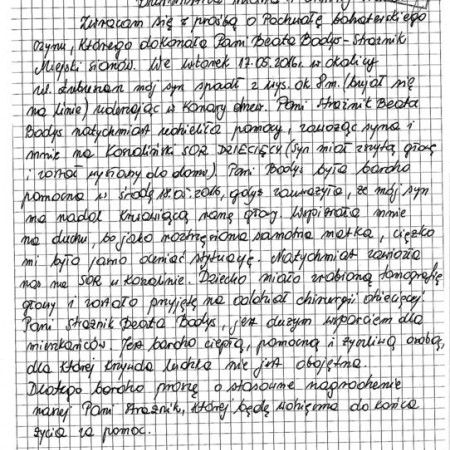 Zwracam się z prośbą o Pochwałę bohaterskiego
czynu, którego dokonała Pani Beata Bodys - Strażnik
Miejski . We wtorek 17.05.2016r. w okolicy
ul. mój syn spadł z wys. ok 8m. (bujał się
na linie) uderzając w konary drzew. Pani Strażnik Beata
Bodys natychmiast udzieliła pomocy, zawożąc syna i
mnie na SOR DZIECIĘCY (syn miał zszytą głowę
i został wypisany do domu). Pani Bodys była bardzo
pomocna w środę 18.05.2016, gdyż zauważyła, że mój syn
ma nadal krwawiącą ranę głowy. Wspierała mnie
na duchu, bo jako roztrzęsiona samotna matka, ciężko
mi było samo ocenić sytuację. Natychmiast zawiozła
nas na SOR w . Dziecko miało zrobioną tomografię
głowy i zostało przyjęte na oddział chirurgii dziecięcej.
Pani Strażnik Beata Bodys, jest dużym wsparciem dla
mieszkańców. Jest bardzo ciepłą, pomocną i życzliwą osobą,
dla której krzywda ludzka nie jest obojętna.
Dlatego bardzo proszę o stosowne nagrodzenie
Pani Strażnik, której będę wdzięczna do końca
życia za pomoc.